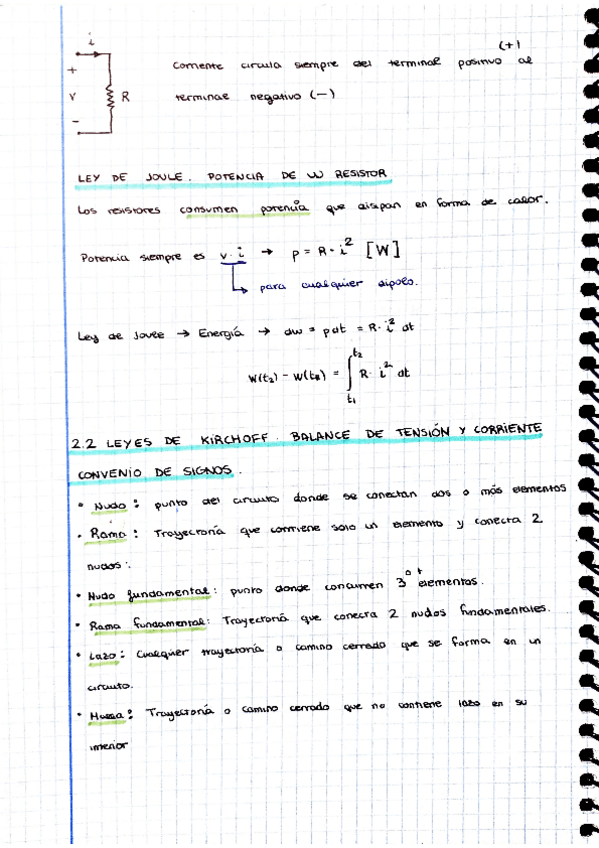 i
(+)
+ Corriente circula siempre del terminal positivo al
V R terminal negativo (-)
-
LEY DE JOULE. POTENCIA DE UN RESISTOR
Los resistores consumen potencia que disipan en forma de calor.
Potencia siempre es v·i → p = R·i² [W]
para cualquier dipolo.
Ley de Joule → Energía → dw = pdt = R·i² dt
W(t₂) - W(t₁) = ∫_{t₁}^{t₂} R·i² dt
2.2 LEYES DE KIRCHOFF. BALANCE DE TENSIÓN Y CORRIENTE
CONVENIO DE SIGNOS.
• Nudo: punto del circuito donde se conectan dos o más elementos
• Rama: Trayectoria que contiene solo un elemento y conecta 2
nudos.
• Nudo fundamental: punto donde concurren 3 o + elementos.
• Rama fundamental: Trayectoria que conecta 2 nudos fundamentales.
• Lazo: Cualquier trayectoria o camino cerrado que se forma en un
circuito.
• Malla: Trayectoria o camino cerrado que no contiene lazo en su
interior